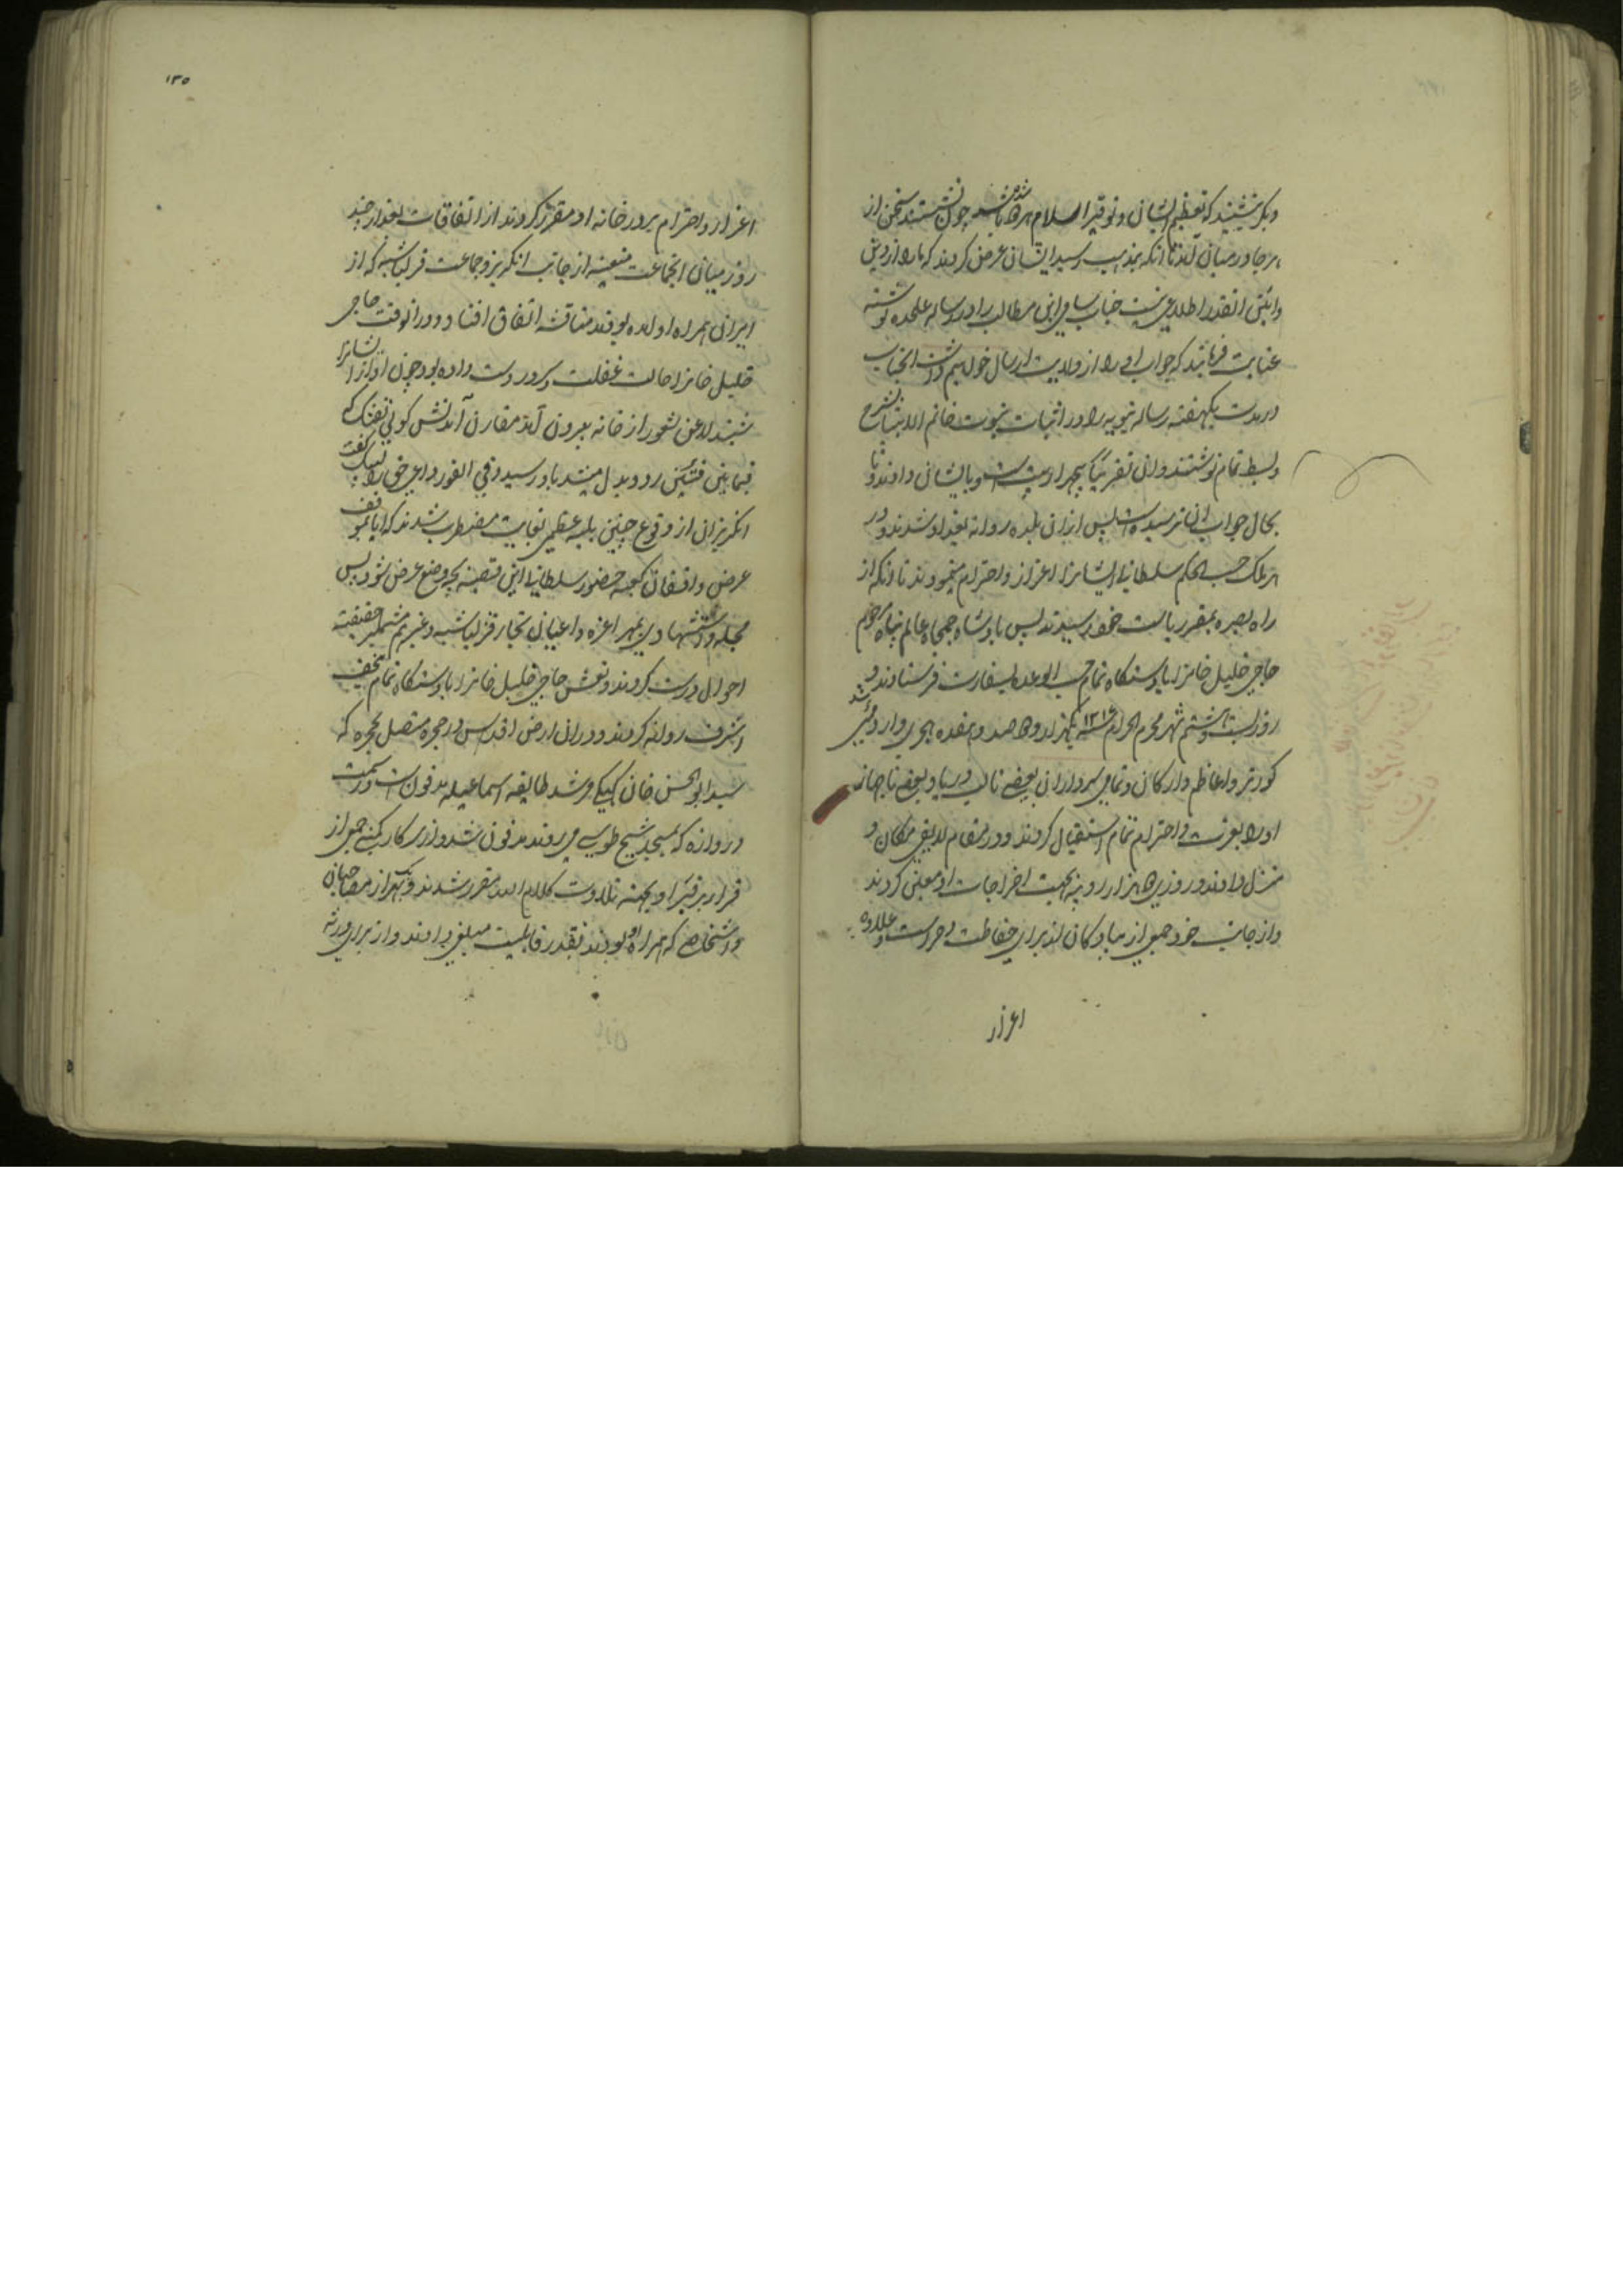 دیگر نشینند که تعظیم ایشان و توقیر اسلام هر دو باشد چون نشستند سخن از
هر جا در میان آمد تا آنکه بمذهب رسید ایشان عرض کردند که ما را از دین
و آئین آنقدر اطلاعی نیست جناب سامی این مطالب را در رساله علیحده نوشته
عنایت فرمائید که جواب او را از ولایت ارسال خواهیم داشت آنجناب
در مدت یکهفته رساله نبویه را در اثبات نبوت خاتم الانبیا بشرح
و بسط تمام نوشتند و آن تقریباً چهار بیت است و بایشان دادند و تا
بحال جواب آن نرسیده است پس از آن بلده روانه بغداد شدند و در
هر ملک حسب الحکم سلطانی ایشانرا اعزاز و احترام مینمودند تا آنکه از
راه بصره بمقر ریاست خود رسیدند پس پادشاه جمجاه عالم پناه مرحوم
حاجی خلیل خانرا بادستگاه تمام حسب الوعده بسفارت فرستادند و
روز بیست و هشتم شهر محرم الحرام سنه ۱۲۱۷ یکهزار و دو صد و هفده هجری وارد بمبئی شد
کورنر و اعاظم و ارکان و تمامی سرداران بعضی تا لب دریا و بعضی تا جهاز
او را بعزت و احترام تمام استقبال کردند و در مقام لایق مکان و
منزل دادند و روزی دو هزار روپیه بجهت اخراجات او معین کردند
و از جانب خود جمعی از سپاهیان لذ برای حفاظت و حراست و علاوه
اعزاز
۱۳۵
اعزاز و احترام بر در خانه او مقرر کردند از اتفاقات بعد از چند
روز میان آنجماعت متعینه از جانب انگریز و جماعت قزلباشیه که از
ایران همراه او آمده بودند مناقشه اتفاق افتاد و در آنوقت حاجی
خلیل خانرا حالت غفلت و سرور دست داده بود چون آواز ایشانرا
شنید لا عن شعور از خانه بیرون آمد مقارن آمدنش کولی تفنک که
فیما بین فئتین رد و بدل میشد باو رسید و فی الفور داعی حق را لبیک گفت
انگریزان از وقوع چنین بلیه عظمی بغایت مضطرب شدند که آیا بموقف
عرض واقفان کعبه حضور سلطانی این قضیه بچه وضع عرض شود پس
مجله و استشهادی بمهر اعزه و اعیان تجار قزلباشیه و غیرهم مشتمل بر حقیقت
احوال درست کردند و نعش حاجی خلیل خانرا بادستگاه تمام بنجف
اشرف روانه کردند و در آن ارض اقدس در حجره متصل بحجره که
سید ابو الحسن خان کهکی مرشد طایفه اسماعیلیه مدفون است در سمت
دروازه که بمسجد شیخ طوسی میروند مدفون شد و از سرکار کمپنی جمعی از
قرا بر قبر او بجهته تلاوت کلام الله مقرر شدند و بهر یک از مصاحبان
و اشخاصی که همراه او بودند بقدر قابلیت مبلغی دادند و از برای ورثه